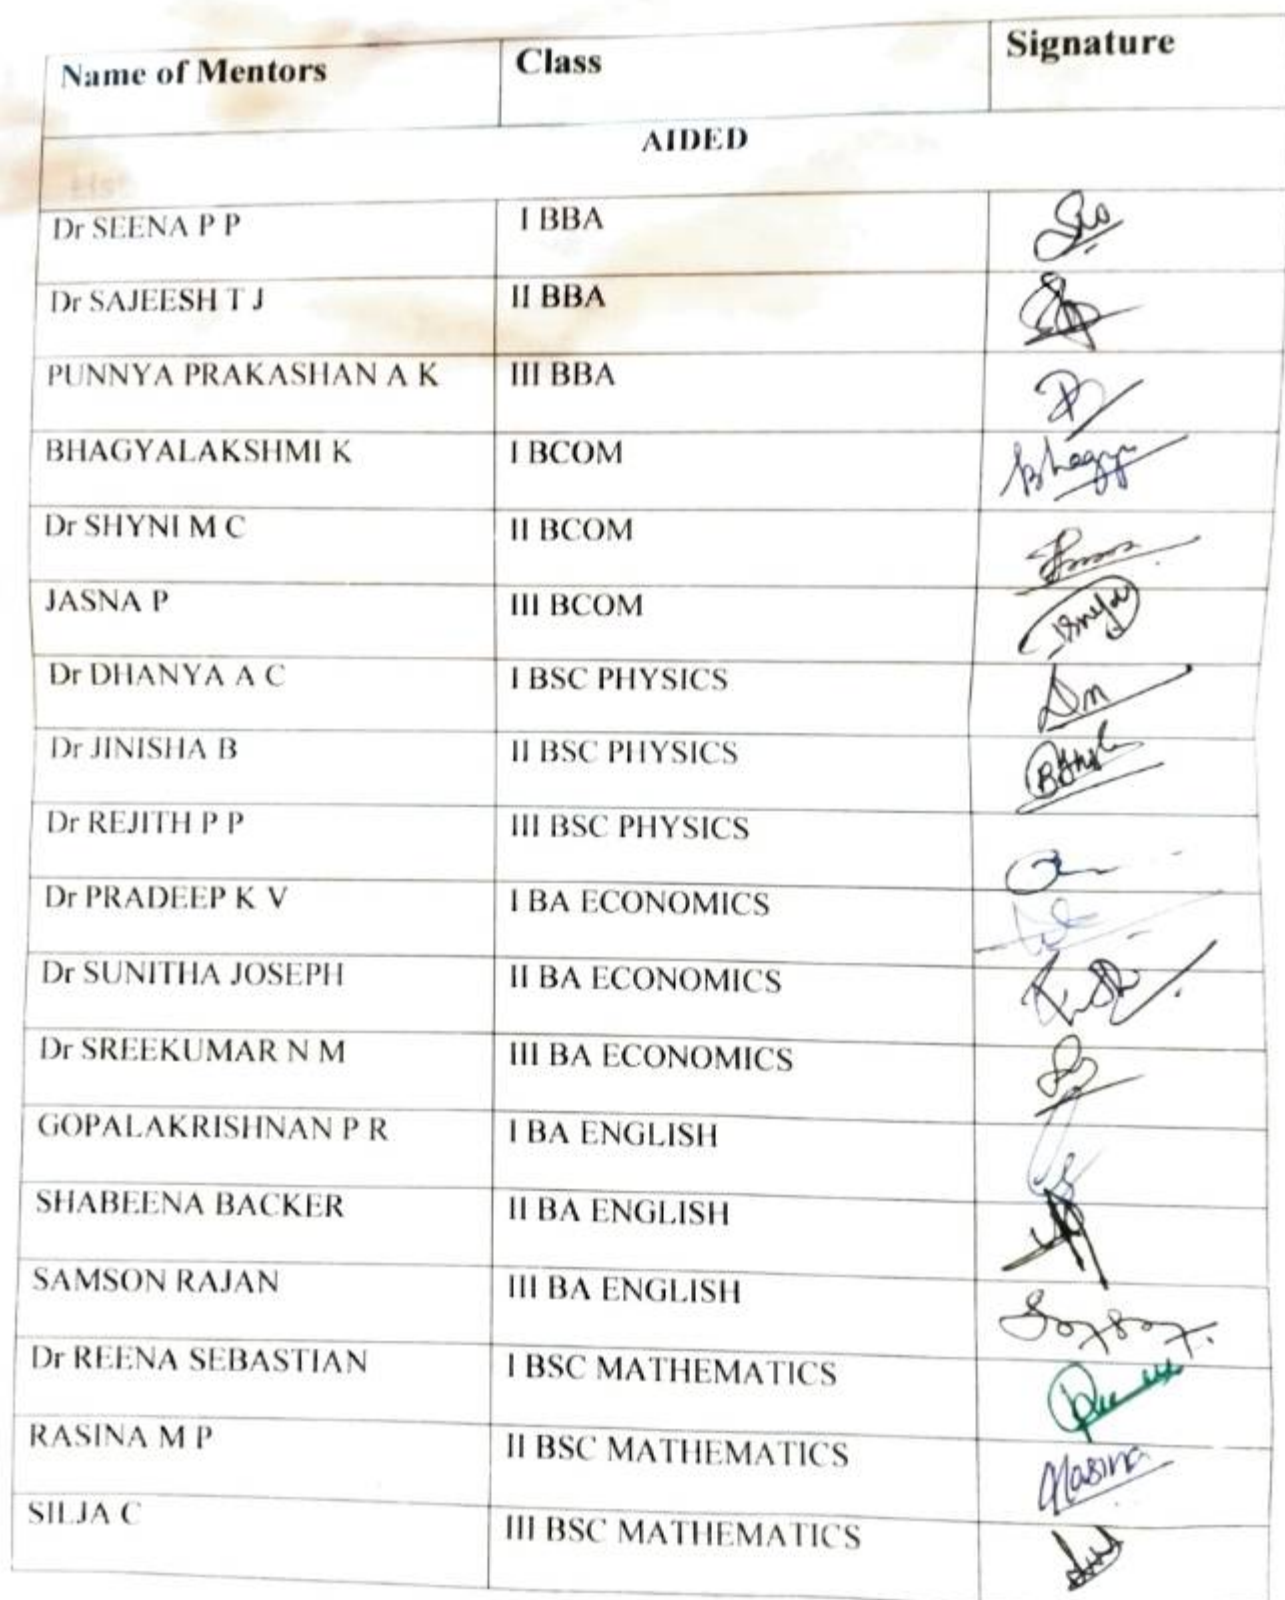 Name of Mentors Class Signature
AIDED
Dr SEENA P P I BBA
Dr SAJEESH T J II BBA
PUNNYA PRAKASHAN A K III BBA
BHAGYALAKSHMI K I BCOM Bhagya
Dr SHYNI M C II BCOM
JASNA P III BCOM
Dr DHANYA A C I BSC PHYSICS
Dr JINISHA B II BSC PHYSICS
Dr REJITH P P III BSC PHYSICS
Dr PRADEEP K V I BA ECONOMICS
Dr SUNITHA JOSEPH II BA ECONOMICS
Dr SREEKUMAR N M III BA ECONOMICS
GOPALAKRISHNAN P R I BA ENGLISH
SHABEENA BACKER II BA ENGLISH
SAMSON RAJAN III BA ENGLISH
Dr REENA SEBASTIAN I BSC MATHEMATICS
RASINA M P II BSC MATHEMATICS Rasina
SILJA C III BSC MATHEMATICS